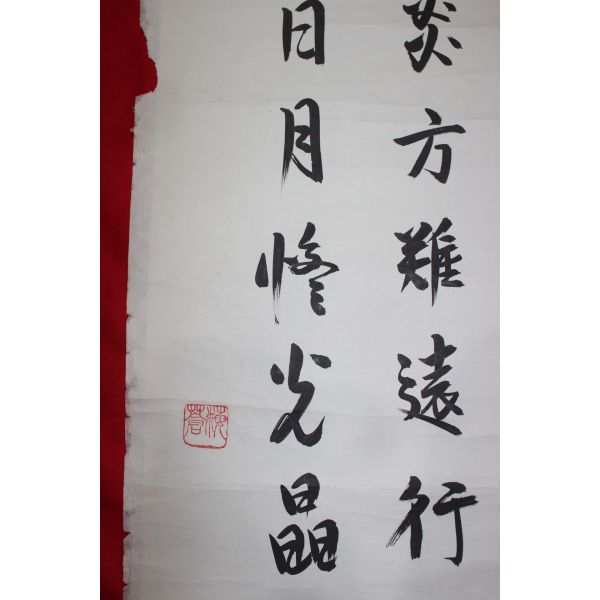 炎方難遠行
日月慘光晶